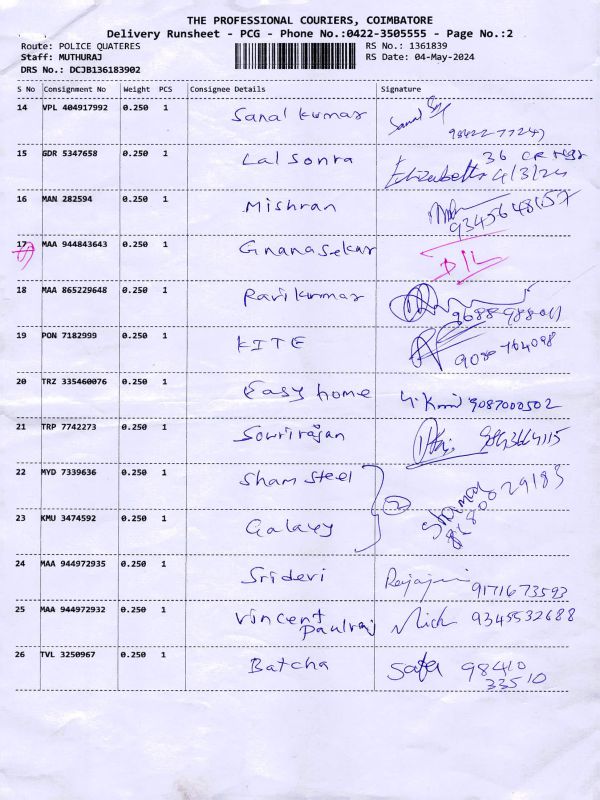 THE PROFESSIONAL COURIERS, COIMBATORE
Delivery Runsheet - PCG - Phone No.:0422-3505555 - Page No.:2
Route: POLICE QUATERES RS No.: 1361839
Staff: MUTHURAJ RS Date: 04-May-2024
DRS No.: DCJB136183902
S No Consignment No Weight PCS Consignee Details Signature
14 VPL 404917992 0.250 1 Sanal kumar
15 GDR 5347658 0.250 1 Lal Sonra Elizabeth 4/3/24
16 MAN 282594 0.250 1 Mishran
17 MAA 944843643 0.250 1 Gnanasekar D/L
18 MAA 865229648 0.250 1 Ravi kumar
19 PON 7182999 0.250 1 KITE
20 TRZ 335460076 0.250 1 Easy home 9087000502
21 TRP 7742273 0.250 1 Sowrirajan
22 MYD 7339636 0.250 1 Sham Steel
2
23 KMU 3474592 0.250 1 Galaxy
24 MAA 944972935 0.250 1 Sridevi 9171673593
25 MAA 944972932 0.250 1 Vincent 9345532688
Paulraj
26 TVL 3250967 0.250 1 Batcha 98410
33510